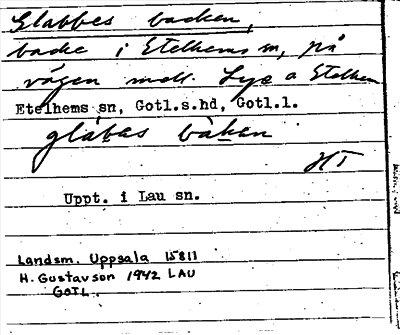 Glabbes backen,
backe i Etelhems sn, på
vägen mell. Lye o Etelhem
Etelhems sn, Gotl.s.hd, Gotl.l.
glabas bàken
HT
Uppt. i Lau sn.
Landsm. Uppsala 15811
H. Gustavson 1942 LAU
GOTL.